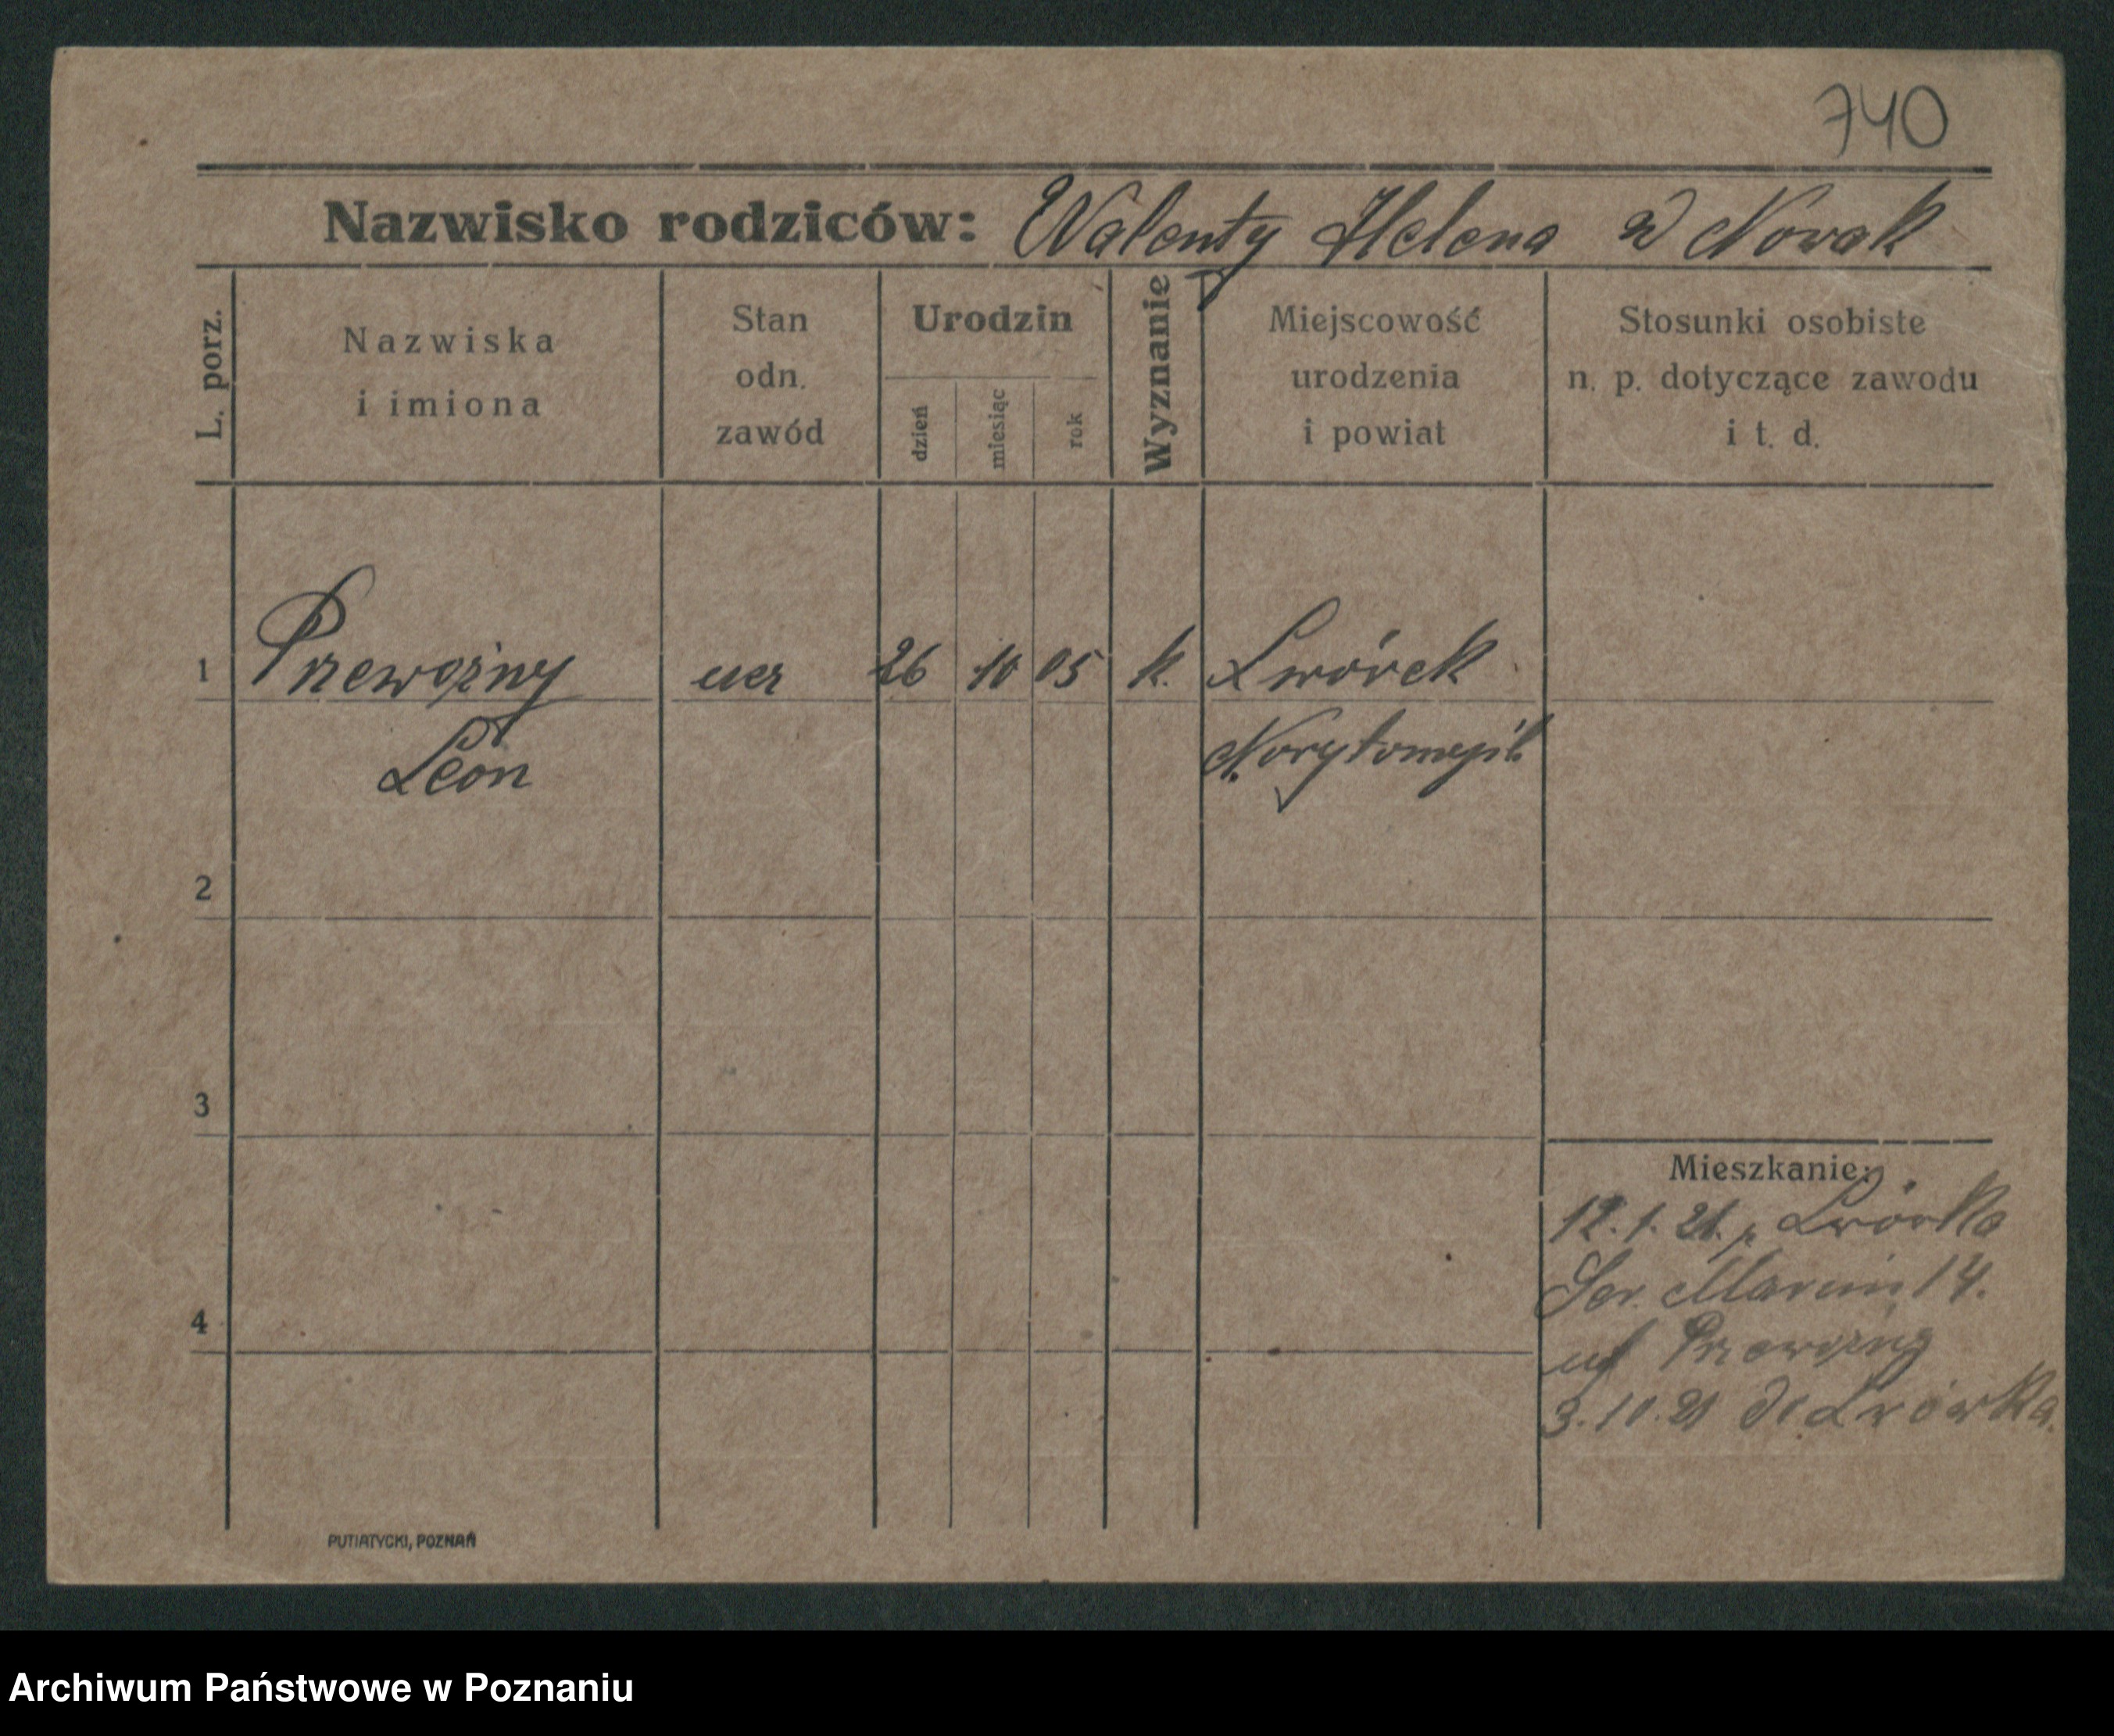 740
Nazwisko rodziców: Walenty Helena zd Nowak
L. porz.
Nazwiska
i imiona
Stan
odn.
zawód
Urodzin
dzień
miesiąc
rok
Wyznanie
Miejscowość
urodzenia
i powiat
Stosunki osobiste
n. p. dotyczące zawodu
i t. d.
1 Przewoźny ucz 26 10 05 k. Lwówek
Leon Nowytomyśl
2
3
Mieszkanie:
12. 1. 21. z Lwówka
Św. Marcin 14.
Przewoźny
4
3. 10. 21 do Lwówka.
PUTIATYCKI, POZNAŃ
Archiwum Państwowe w Poznaniu